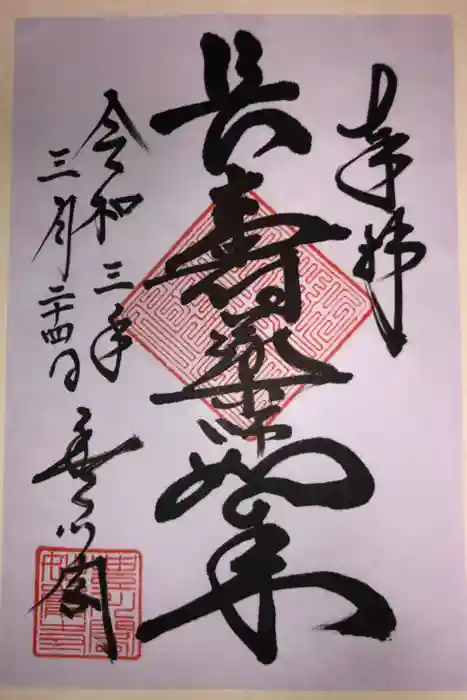 奉拝
長寿薬師如来
令和三年
三月二十四日